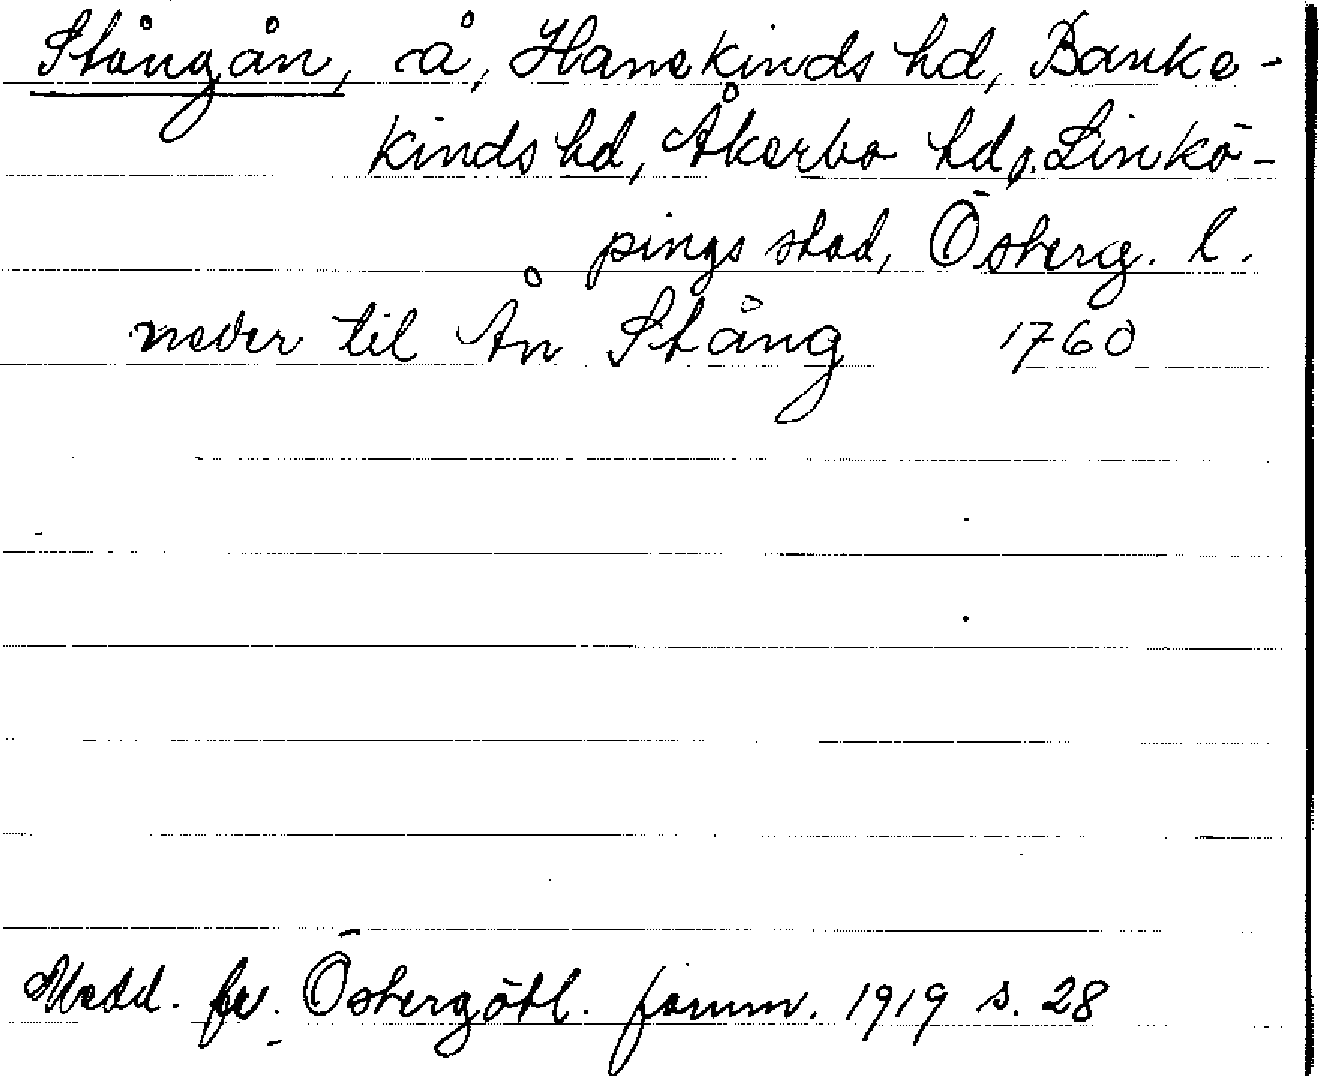 Stångån, å, Hanekinds hd, Banke-
kinds hd, Åkerbo hd o. Linkö-
pings stad, Österg. l.
neder til Ån Stång 1760
Medd. fr. Östergötl. fornm. 1919 s. 28